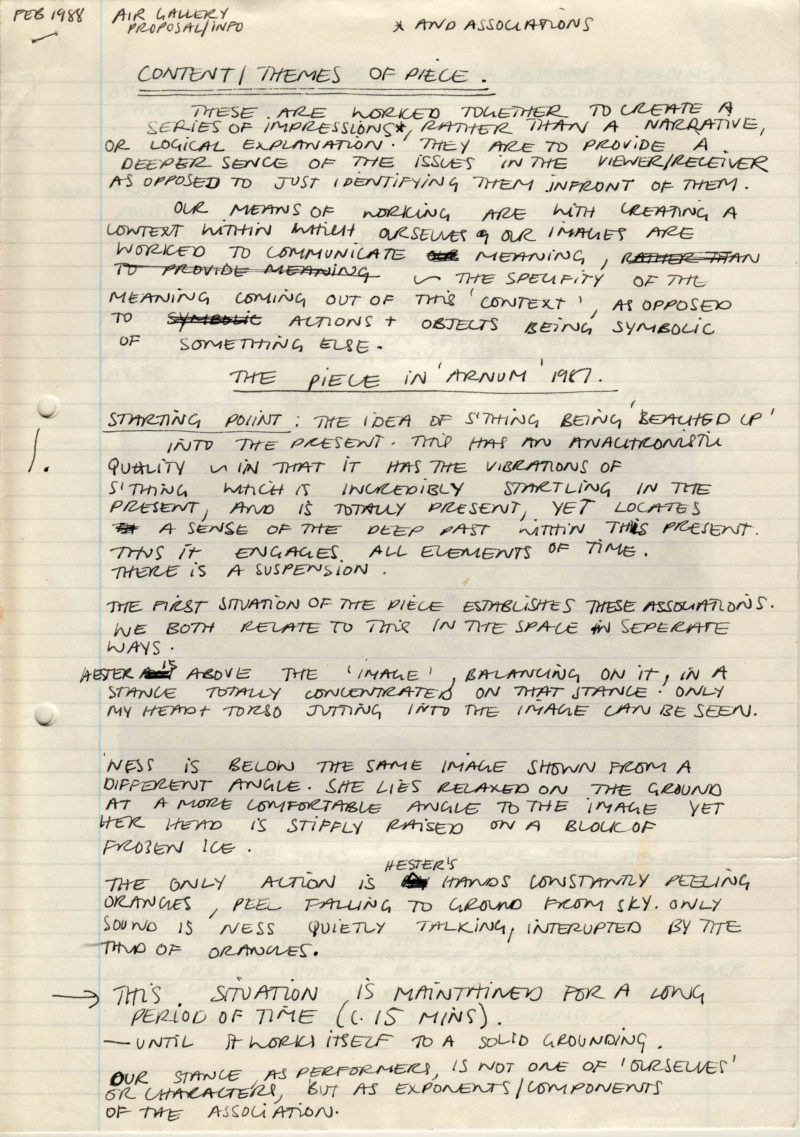 FEB 1988 AIR GALLERY
PROPOSAL/INFO * AND ASSOCIATIONS
CONTENT/THEMES OF PIECE.
THESE ARE WORKED TOGETHER TO CREATE A
SERIES OF IMPRESSIONS*, RATHER THAN A NARRATIVE,
OR LOGICAL EXPLANATION. THEY ARE TO PROVIDE A
DEEPER SENCE OF THE ISSUES IN THE VIEWER/RECEIVER
AS OPPOSED TO JUST IDENTIFYING THEM INFRONT OF THEM.
OUR MEANS OF WORKING ARE WITH CREATING A
CONTEXT WITHIN WHICH OURSELVES & OUR IMAGES ARE
WORKED TO COMMUNICATE OUR MEANING, RATHER THAN
TO PROVIDE MEANING ~ THE SPECIFITY OF THE
MEANING COMING OUT OF THIS 'CONTEXT', AS OPPOSED
TO SYMBOLIC ACTIONS + OBJECTS BEING SYMBOLIC
OF SOMETHING ELSE.
THE PIECE IN 'ARNUM' 1987.
STARTING POINT: THE IDEA OF S'THING BEING 'BEACHED UP'
INTO THE PRESENT. THIS HAS AN ANACHRONISTIC
1. QUALITY ~ IN THAT IT HAS THE VIBRATIONS OF
S'THING WHICH IS INCREDIBLY STARTLING IN THE
PRESENT, AND IS TOTALLY PRESENT, YET LOCATES
A SENSE OF THE DEEP PAST WITHIN THIS PRESENT.
THUS IT ENGAGES ALL ELEMENTS OF TIME.
THERE IS A SUSPENSION.
THE FIRST SITUATION OF THE PIECE ESTABLISHES THESE ASSOCIATIONS.
WE BOTH RELATE TO THIS IN THE SPACE IN SEPERATE
WAYS.
HESTER IS ABOVE THE 'IMAGE', BALANCING ON IT, IN A
STANCE TOTALLY CONCENTRATED ON THAT STANCE. ONLY
MY HEAD + TORSO JUTTING INTO THE IMAGE CAN BE SEEN.
NESS IS BELOW THE SAME IMAGE SHOWN FROM A
DIFFERENT ANGLE. SHE LIES RELAXED ON THE GROUND
AT A MORE COMFORTABLE ANGLE TO THE IMAGE YET
HER HEAD IS STIFFLY RAISED ON A BLOCK OF
FROZEN ICE.
THE ONLY ACTION IS HESTER'S HANDS CONSTANTLY PEELING
ORANGES, PEEL FALLING TO GROUND FROM SKY. ONLY
SOUND IS NESS QUIETLY TALKING, INTERUPTED BY THE
THUD OF ORANGES.
→ THIS SITUATION IS MAINTAINED FOR A LONG
PERIOD OF TIME (C. 15 MINS).
— UNTIL IT WORKS ITSELF TO A SOLID GROUNDING.
OUR STANCE AS PERFORMERS, IS NOT ONE OF 'OURSELVES'
OR CHARACTERS, BUT AS EXPONENTS/COMPONENTS
OF THE ASSOCIATION.